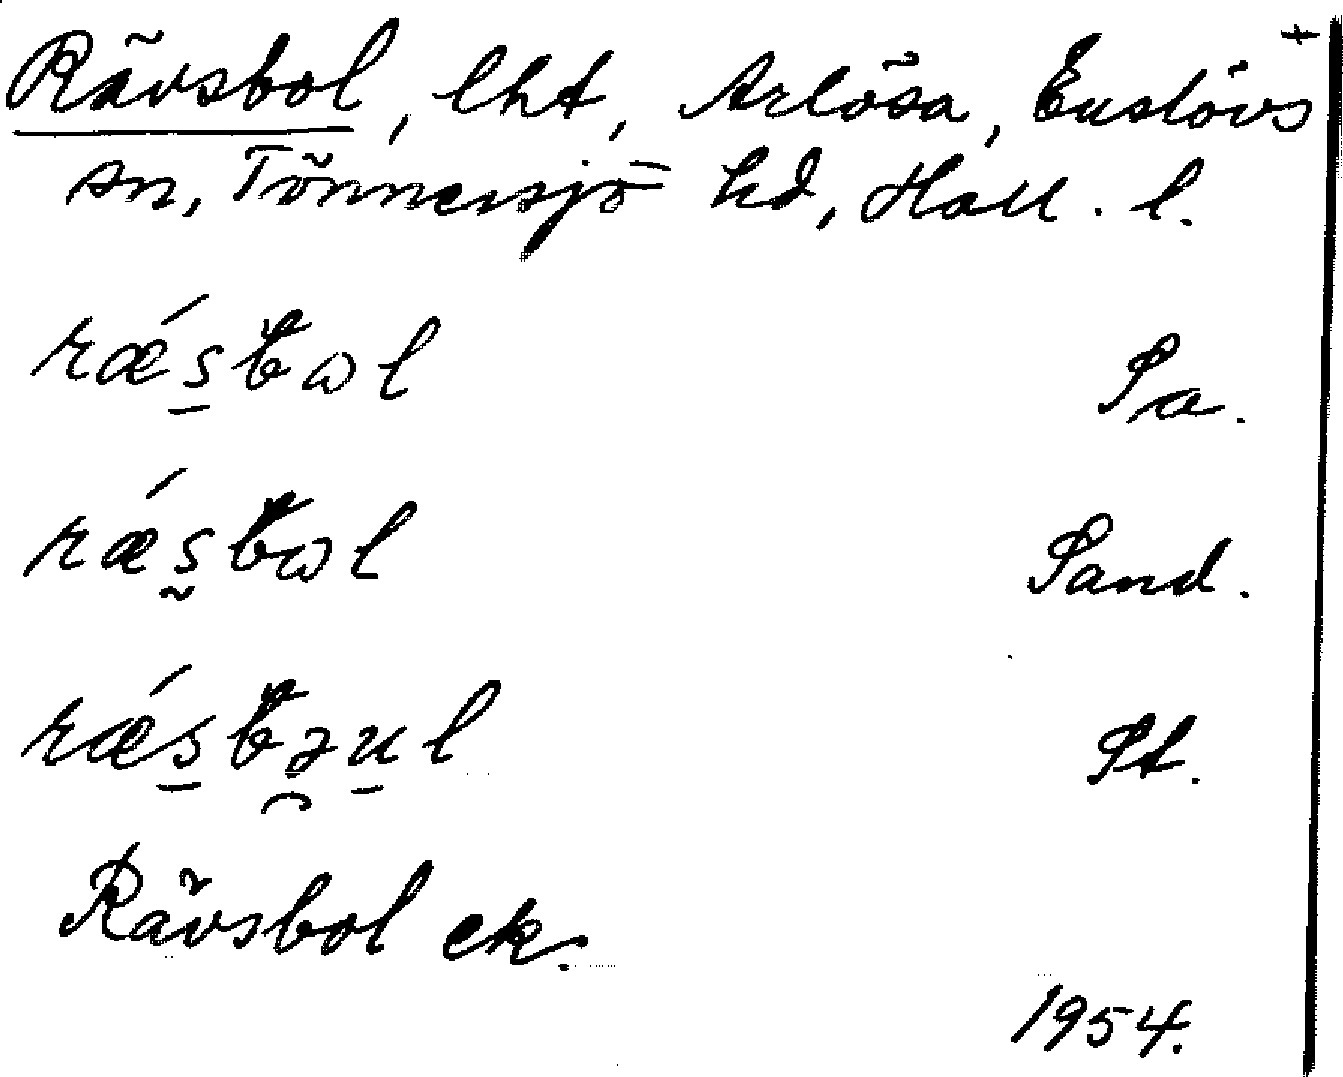 Rävsbol, lht, Arlösa, Euslövs +
sn, Tönnersjö hd, Hall. l.
rǽs̠bωl Sa.
rǽs̰bωl Sand.
rǽs̠bə̯u̠l St.
Rävsbol ek.
1954.